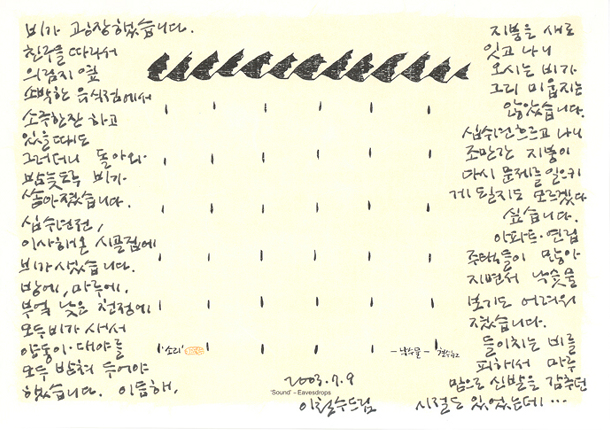 비가 굉장했습니다.
친구를 따라서
의림지 옆
소박한 음식점에서
소주한잔 하고
있을 때도
그러더니 돌아와
밤늦도록 비가
쏟아졌습니다.
십수년전,
이사해온 시골집에
비가 샜습니다.
방에, 마루에,
부엌 낮은 천정에
모두 비가 새서
양동이·대야를
모두 받쳐 두어야
했습니다. 이듬해,
지붕을 새로
잇고 나니
오시는 비가
그리 미웁지는
않았습니다.
십수년 흐르고 나니
조만간 지붕이
다시 문제를 일으키
게 될지도 모르겠다
싶습니다.
아파트·연립
주택들이 많아
지면서 낙숫물
보기도 어려워
졌습니다.
들이치는 비를
피해서 마루
밑으로 신발을 감추던
시절도 있었는데···
'소리'
-낙숫물-
철수
2003.7.9
'Sound' - Eavesdrops
이철수드림